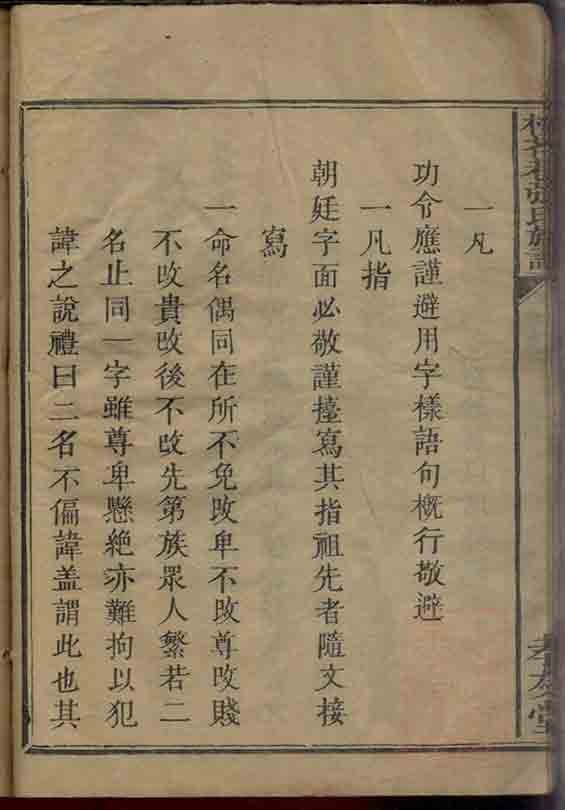 張氏族譜
孝友堂
一凡
功令應謹避用字樣語句概行敬避
一凡指
朝廷字面必敬謹擡寫其指祖先者隨文接
寫
一命名偶同在所不免改卑不改尊改賤
不改貴改後不改先第族眾人繁若二
名止同一字雖尊卑懸絕亦難拘以犯
諱之說禮曰二名不偏諱盖謂此也其